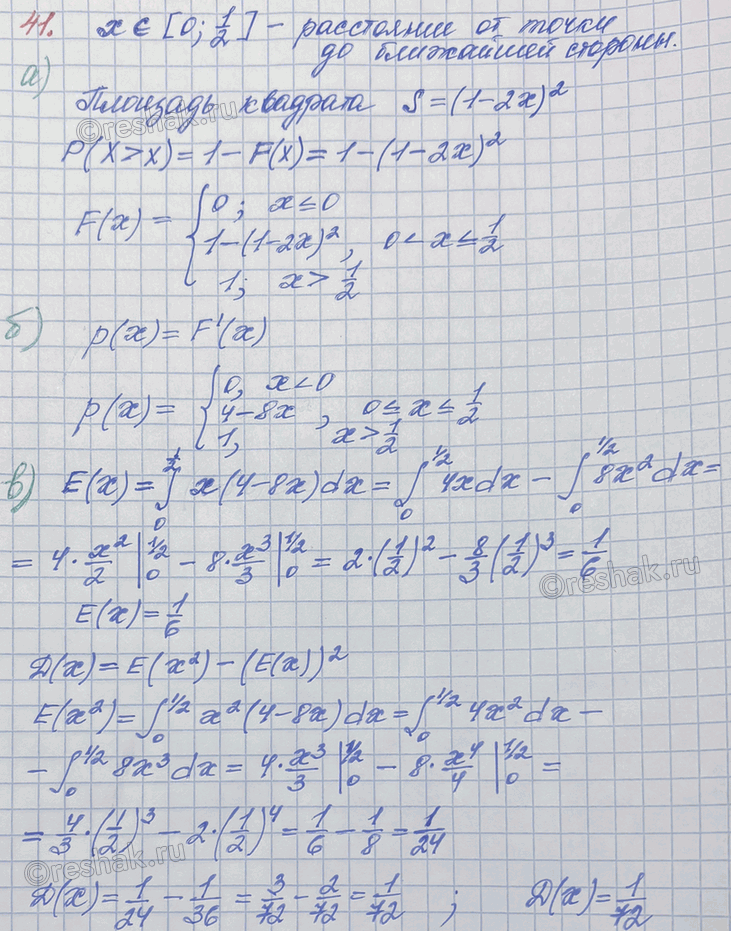 41. x ∈ [0; 1/2] – расстояние от точки
до ближайшей стороны.
а)
Площадь квадрата S = (1-2x)²
P(X>x) = 1 - F(x) = 1 - (1-2x)²
F(x) = { 0; x ≤ 0
1-(1-2x)², 0 < x ≤ 1/2
1; x > 1/2
б) p(x) = F'(x)
p(x) = { 0, x < 0
4-8x, 0 ≤ x ≤ 1/2
1, x > 1/2
в) E(x) = ∫₀^{1/2} x(4-8x)dx = ∫₀^{1/2} 4xdx - ∫₀^{1/2} 8x²dx =
= 4·x²/2 |₀^{1/2} - 8·x³/3 |₀^{1/2} = 2·(1/2)² - 8/3(1/2)³ = 1/6
E(x) = 1/6
D(x) = E(x²) - (E(x))²
E(x²) = ∫₀^{1/2} x²(4-8x)dx = ∫₀^{1/2} 4x²dx -
- ∫₀^{1/2} 8x³dx = 4·x³/3 |₀^{1/2} - 8·x⁴/4 |₀^{1/2} =
= 4/3·(1/2)³ - 2·(1/2)⁴ = 1/6 - 1/8 = 1/24
D(x) = 1/24 - 1/36 = 3/72 - 2/72 = 1/72 ; D(x) = 1/72
©reshak.ru
©reshak.ru
©reshak.ru